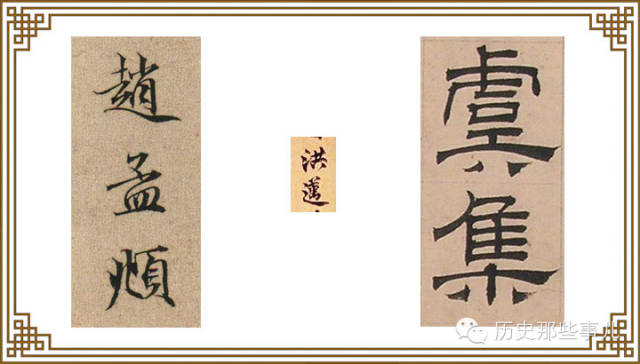 趙孟頫
洪邁
虞集
历史那些事儿